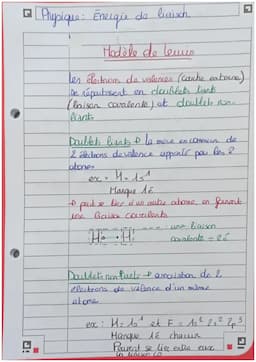 Physique : Énergie de liaison
Modèle de Lewis
Les électrons de valences (couche externe)
se répartissent en doublets liants
(liaison covalente) et doublets non
liants
Doublets liants → la mise en commun de
2 électrons de valence apporté par les 2
atomes
ex : H = 1s¹
Manque 1é
→ peut se lier d'un autre atome, en formant
une liaison covalente
H • • H
une liaison
covalente = 2é
Doublets non liants → association de 2
électrons de valence d'un même
atome
ex : H = 1s¹ et F = 1s² 2s² 2p⁵
Manque 1é chacun
Peuvent se lier